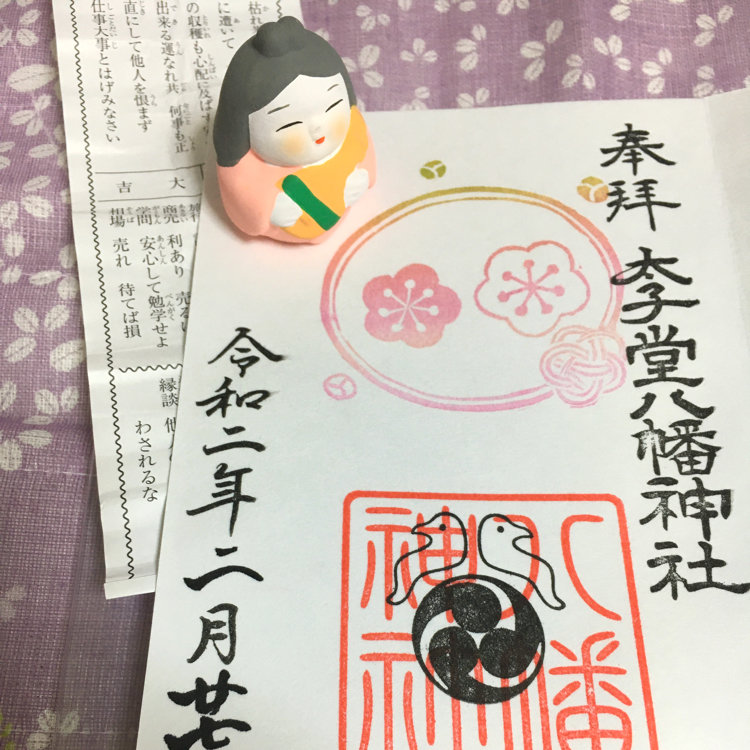 奉拝
太子堂八幡神社
令和二年二月廿七
八幡
枯れ
に遭いて
の収穫も心配に及ばず
出来る運なれ共 何事も正
直にして他人を恨まず
仕事大事とはげみなさい
大吉
利あり 売る
安心して勉学せよ
相場 売れ 待てば損
縁談 他
わされるな